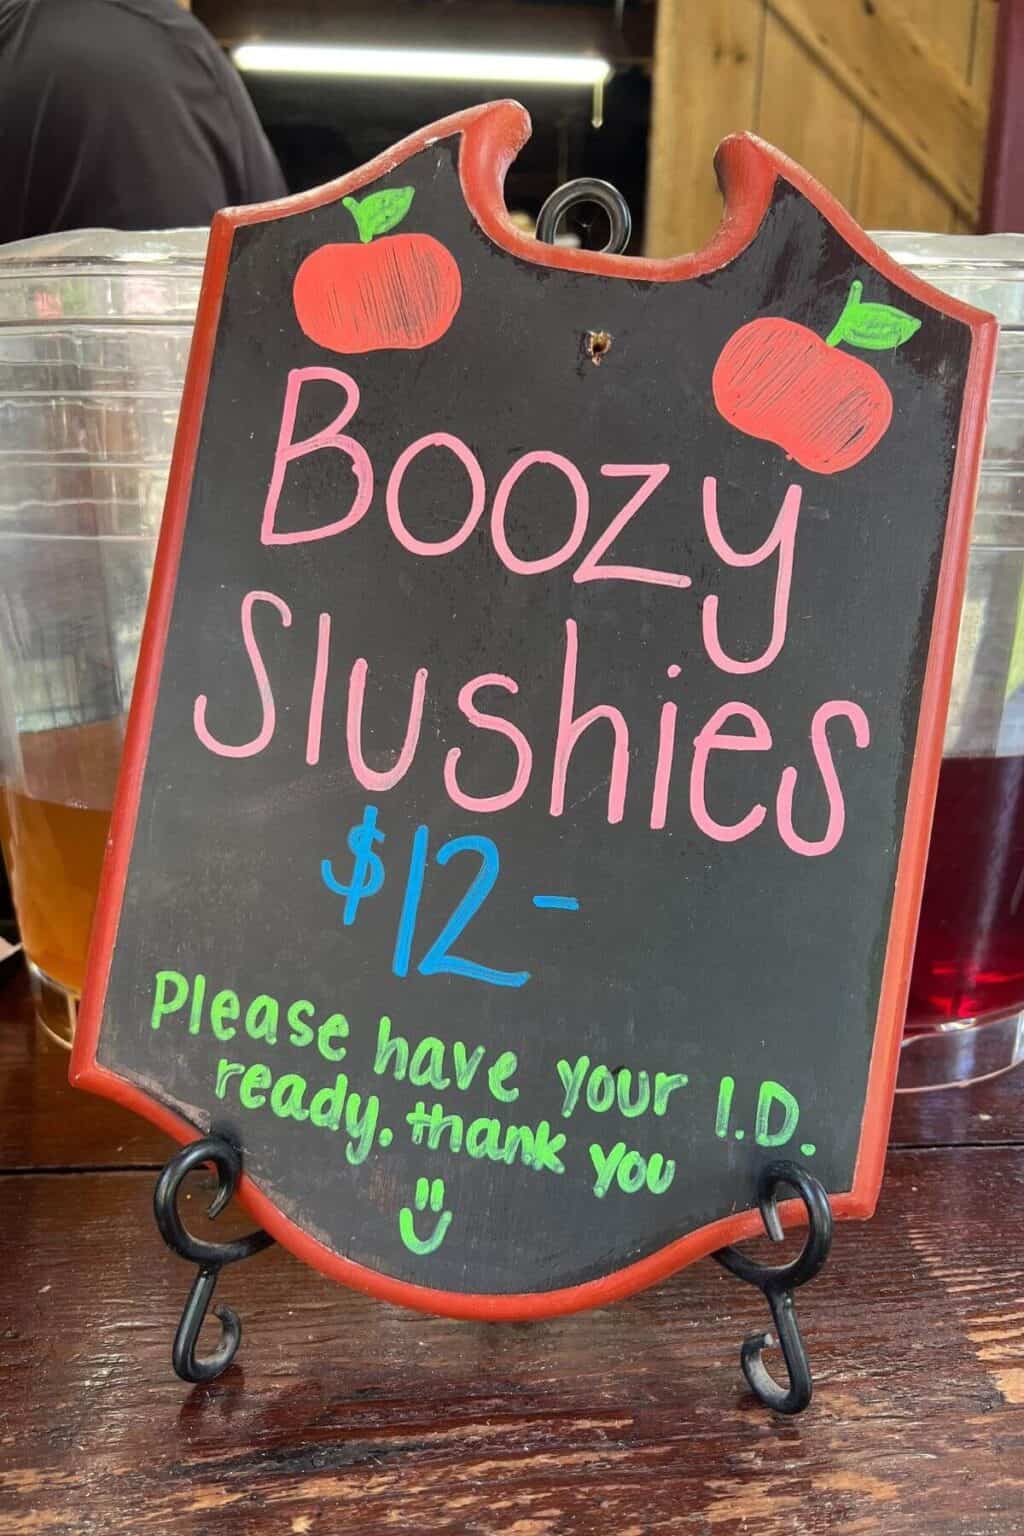 Boozy
Slushies
$12-
Please have your I.D.
ready. thank you